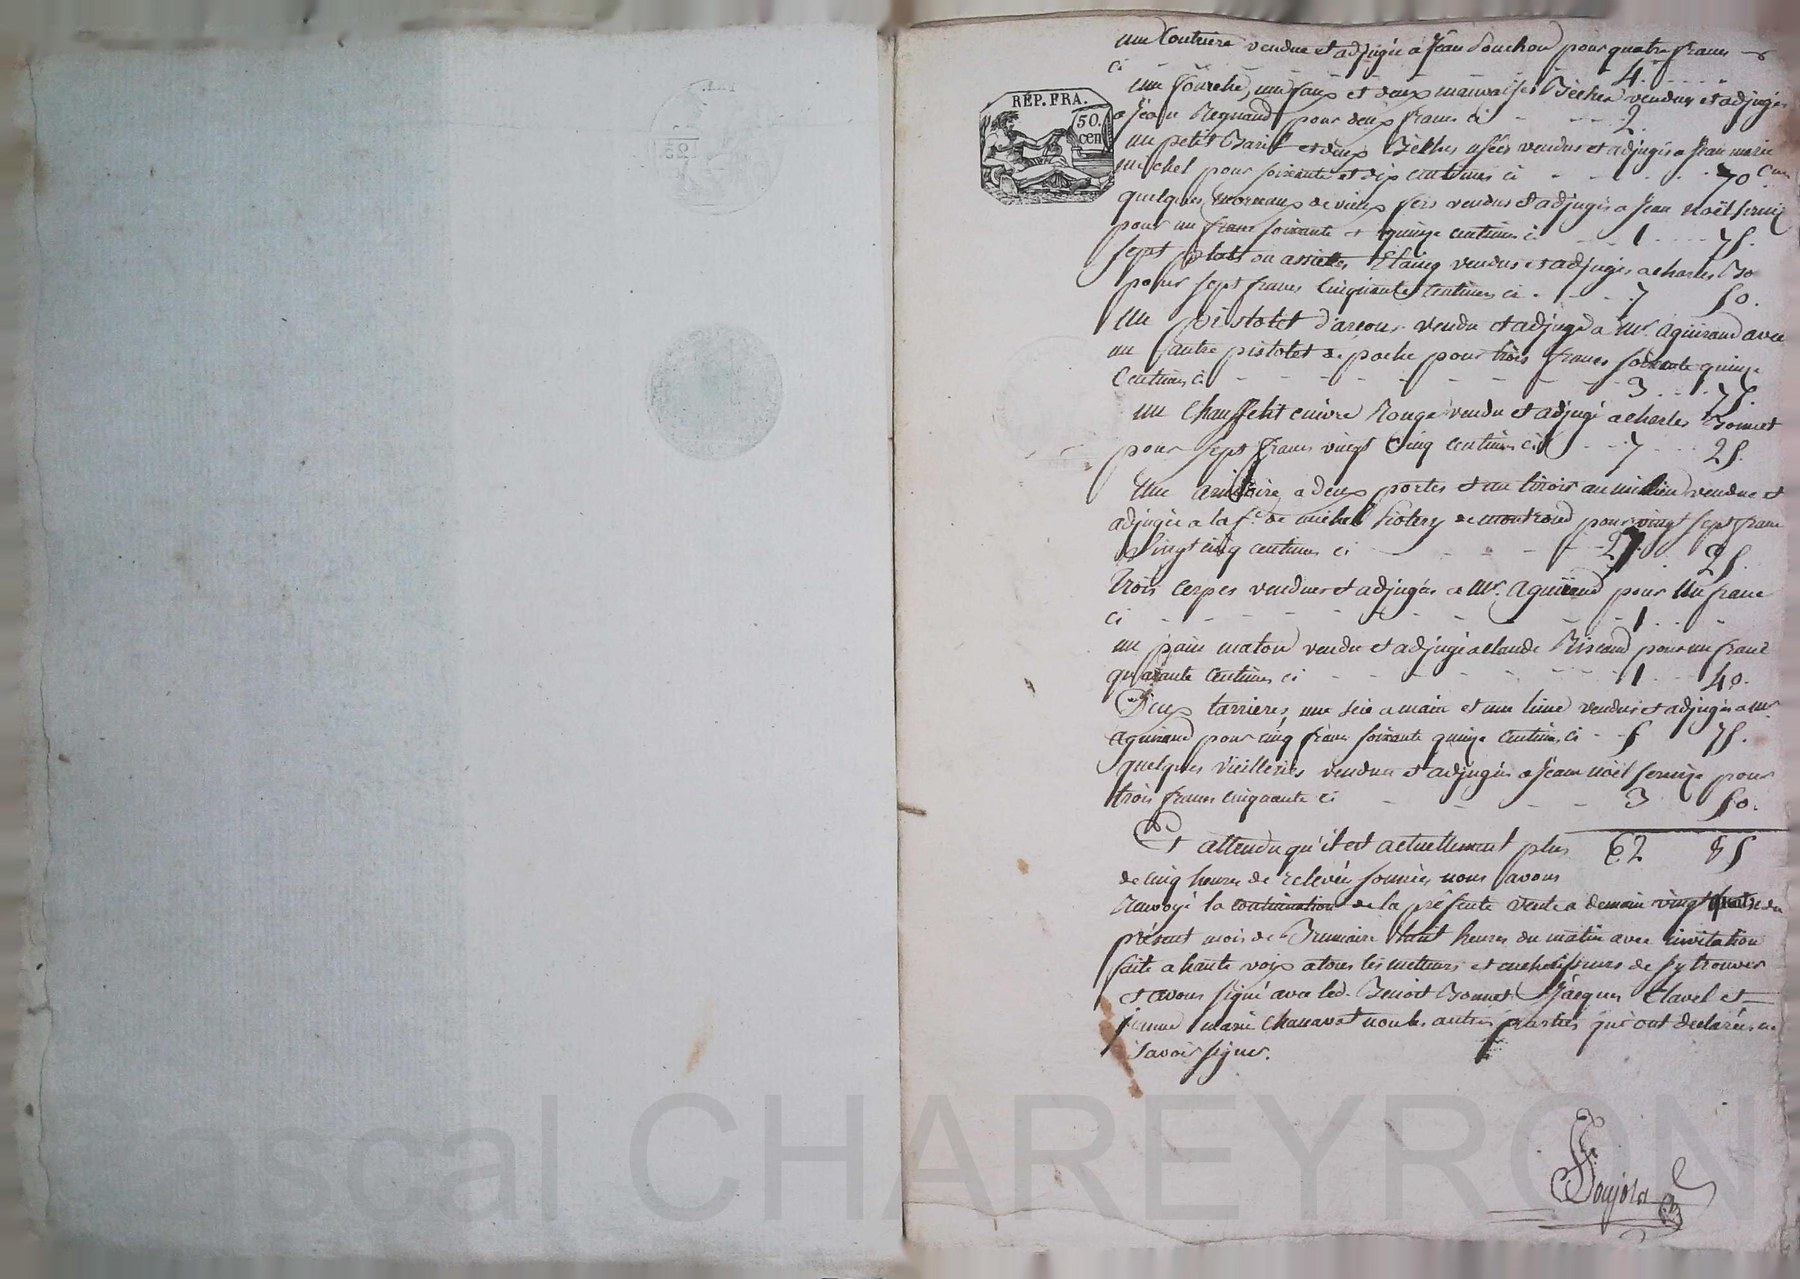 une Coutriere vendue et adjugée a Jean Souchon pour quatre francs
ci 4.
une fourche, une faux et deux mauvaises Bêches vendus et adjugés
a Jean Regnaud pour deux francs ci 2.
un petit Baril et deux Bêches usées vendus et adjugés a Jean marie
michel pour soixante et dix centimes ci 70 Cmes
quelques morceaux de vieux fers vendus et adjugés a Jean noël
pour un franc soixante et quinze centimes ci 1 75.
sept plats ou assiettes Etaing vendus et adjugés a charles Bo
pour sept francs cinquante centimes ci 7 50.
Un pistolet d'arcons vendu et adjugé a Mr. aguiraud avec
un autre pistolet de poche pour trois francs soixante quinze
Centimes ci 3 75.
un chauffelit cuivre Rouge vendu et adjugé a charles Bonnet
pour sept francs vingt Cinq centimes ci 7 25.
Une armoire a deux portes et un tiroir au milieu vendue et
adjugée a la fe. de michel de montrond pour vingt sept franc
Vingt cinq centimes ci 27 25.
Trois serpes vendues et adjugées a Mr. aguiraud pour Un franc
ci 1
un pain maton vendu et adjugé a claude Riscaud pour un franc
quarante centimes ci 1 40.
Deux tarrieres, une scie a main et une lime vendus et adjugés a Mr
aguiraud pour cinq francs soixante quinze centimes ci 5 75.
quelques vieilleries vendues et adjugées a Jean noël pour
trois francs cinquante ci 3 50.
Et attendu qu'il est actuellement plus 62 85
de cinq heures de relevée sonnées nous avons
Renvoyé la continuation de la présente vente a demain vingt quatre du
présent mois de Brumaire huit heures du matin avec invitation
faite a haute voix a tous les metteurs et encherisseurs de s'y trouver
et avons signé avec led. Benoit Bonnet Jacques Clavel et
jeanne marie Chanavat non les autres parties qui ont declarées ne
savoir signer.
Soujols
RÉP. FRA.
50.
cen
25
Pascal CHAREYRON